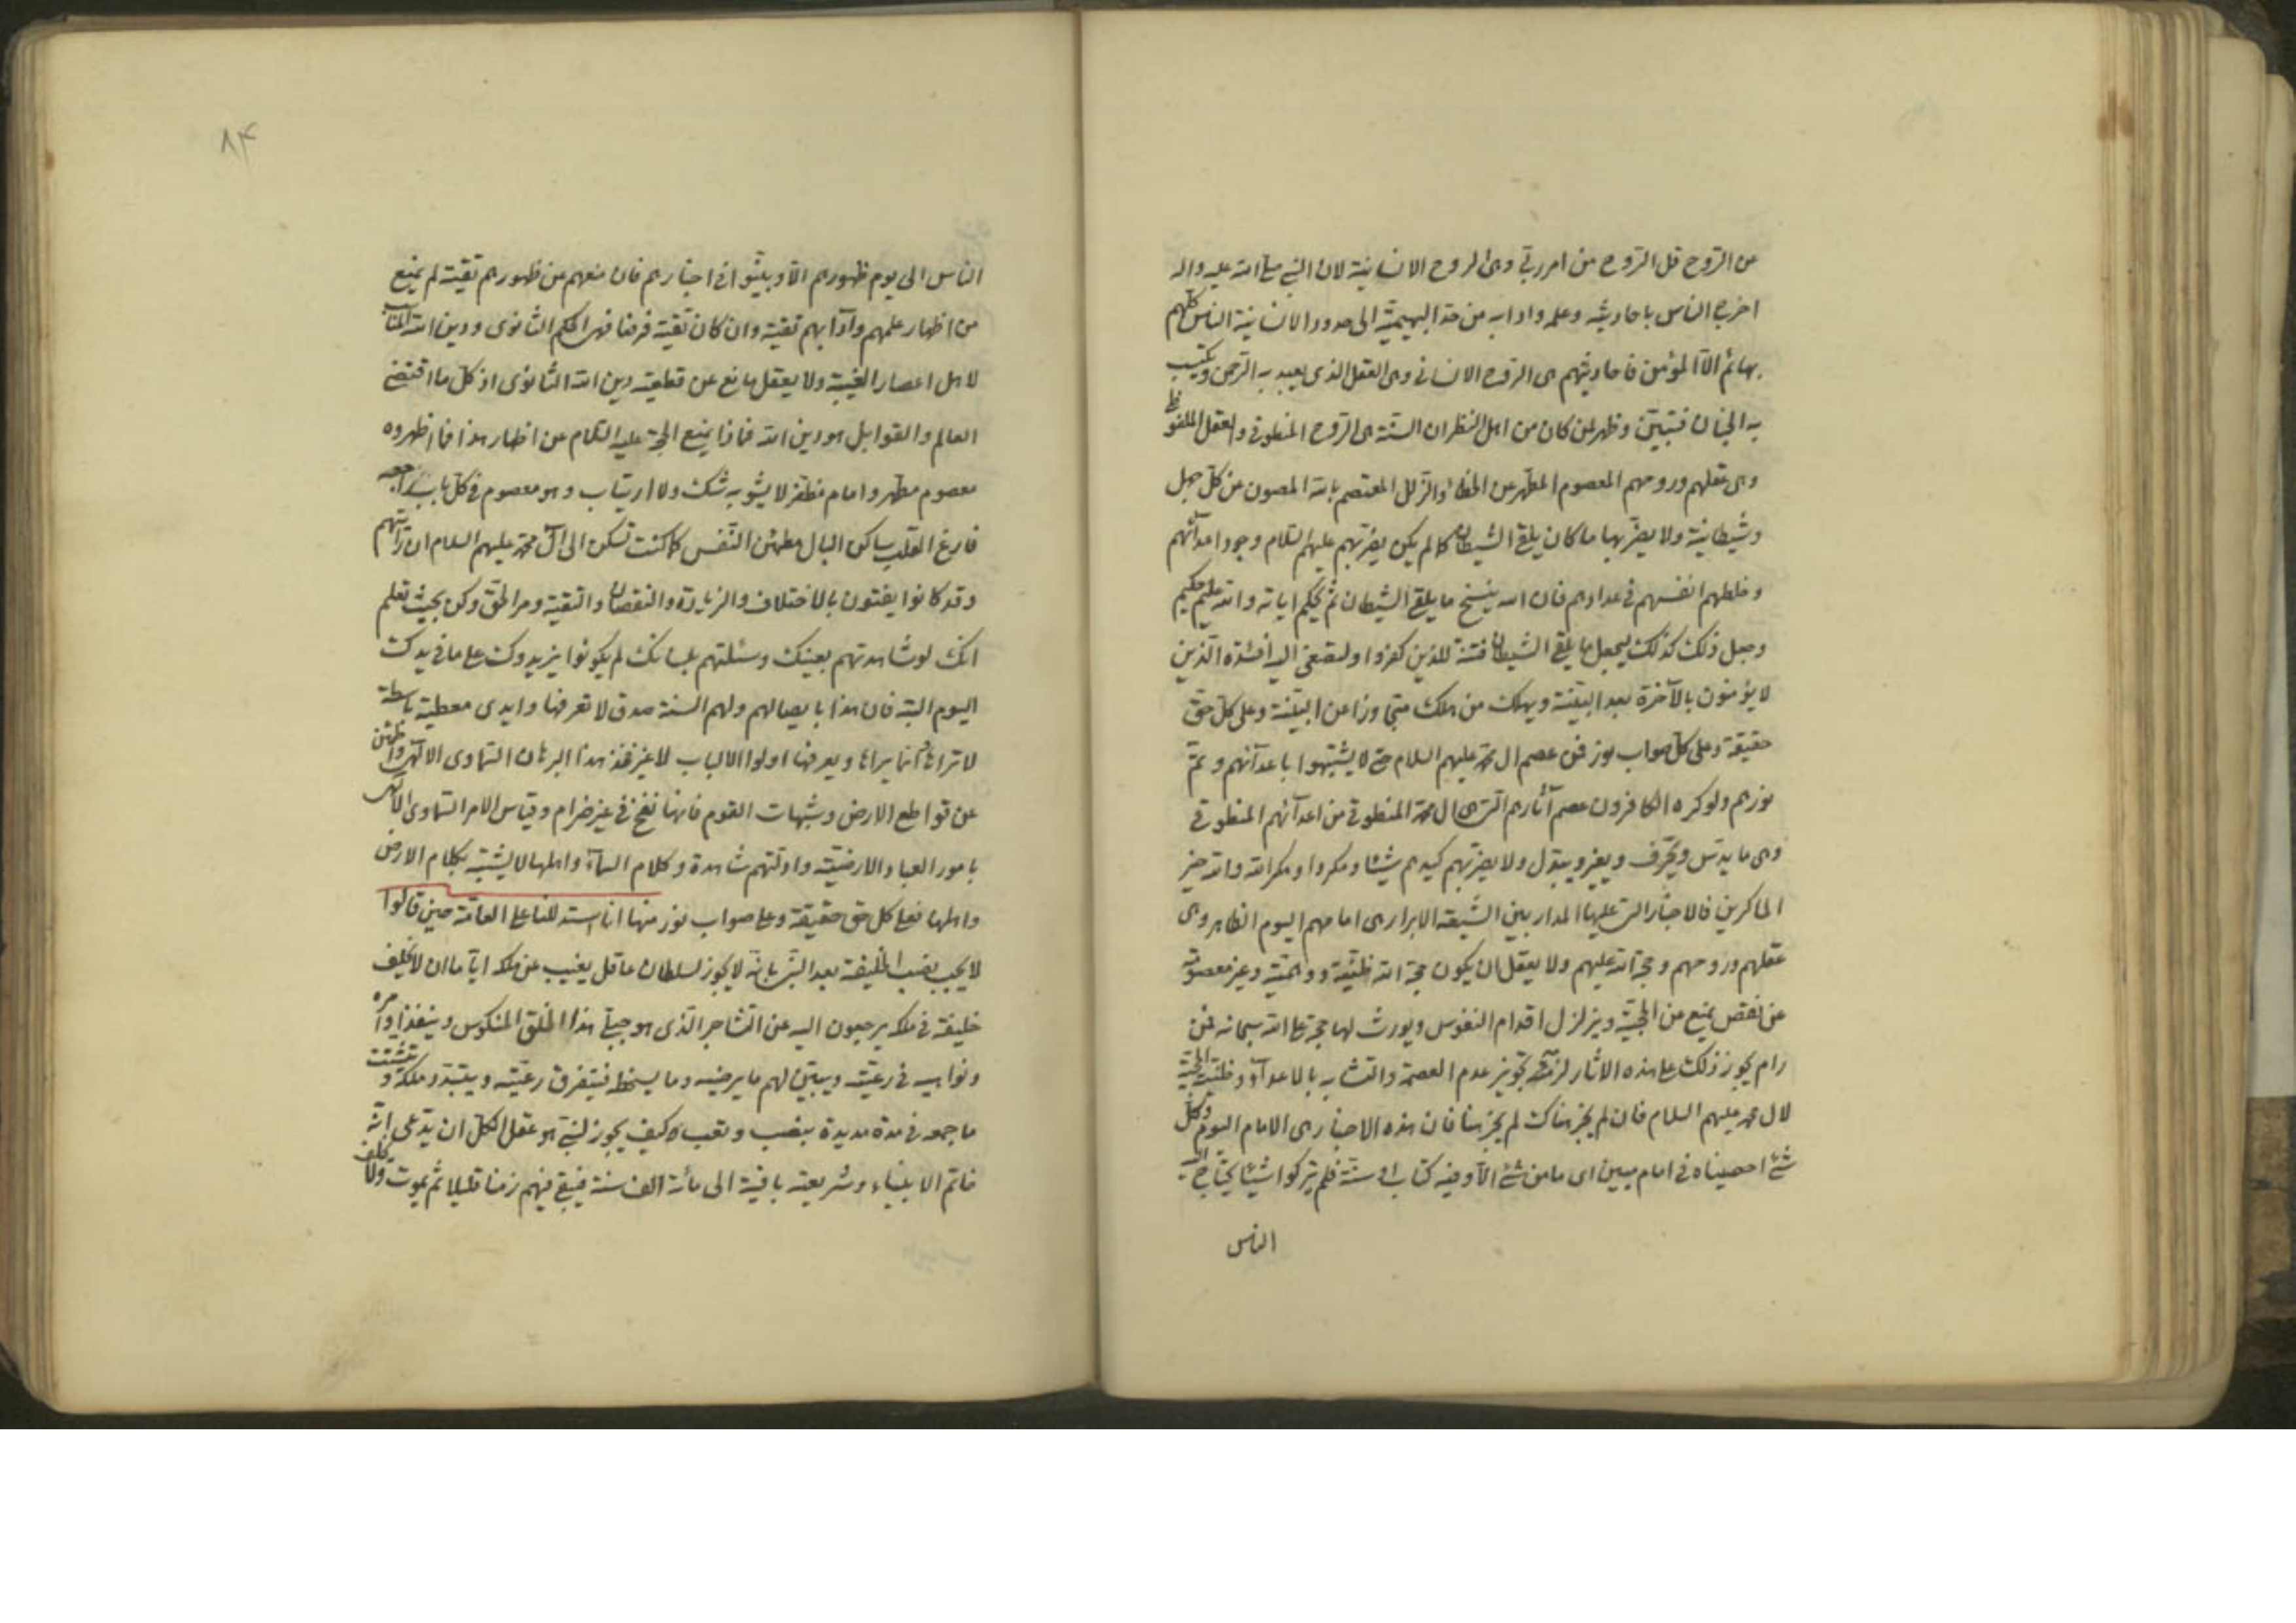 عن الرّوح قل الرّوح من امر ربّي وهى الروح الانسانية لان النبي صلى الله عليه واله
اخرج الناس باحاديثه وعلمه وادابه من حدّ البهيميّة الى حدود الانسانية الناس كلّهم
بهائم الّا المؤمن فاحاديثهم هى الرّوح الانسانى وهى العقل الذى يعبد به الرّحمن ويكتسب
به الجنان فتبيّن وظهر لمن كان من اهل النظر ان السنّة هى الرّوح المنطوقى والعقل الملفوظى
وهى عقلهم وروحهم المعصوم المطهّر عن الخطاء والزّلل المعتصم بالله المصون عن كلّ جهل
وشيطانية ولا يضرّ بها ما كان يلقى الشيطان كما لم يكن يضرّ بهم عليهم السّلام وجود اعدائهم
وخلطهم انفسهم فى عدادهم فان الله ينسخ ما يلقى الشيطان ثمّ يحكم اياته والله عليم حكيم
وجعل ذلك كذلك ليجعل ما يلقى الشيطان فتنة للذين كفروا ولتصغى اليه افئدة الّذين
لا يؤمنون بالآخرة بعد البيّنة ويهلك من هلك متجاوزا عن البيّنة وعلى كلّ حقّ
حقيقة وعلى كلّ صواب نور فمن عصم ال محمّد عليهم السلام حتى لا يشتبهوا باعدآئهم ويتمّ
نورهم ولو كره الكافرون عصم آثارهم التى هى ال محمّد المنطوقى من اعدآئهم المنطوقى
وهى ما يدسّ ويحرّف ويغيّر ويبدّل ولا يضرّهم كيدهم شيئا ومكروا ومكر الله والله خير
الماكرين فالاخبار التى عليها المدار بين الشّيعة الابرار هى امامهم اليوم الظاهر وهى
عقلهم وروحهم وحجّة الله عليهم ولا يعقل ان يكون حجّة الله ظنّيّة ووهميّة وغير معصومة
عن نقص يمنع من الحجّيّة ويزلزل اقدام النفوس ويورث لها حجّة على الله سبحانه فمن
رام يجوز ذلك على هذه الاثار لزمه تجويز عدم العصمة والتشابه بالاعدآء وظنّيّة الحجّيّة
لال محمد عليهم السلام فان لم يجز هناك لم يجز هنا فان هذه الاخبار هى الامام اليوم وكلّ
شئ احصيناه فى امام مبين اى ما من شئ الّا وفيه كتاب او سنّة فلم يتركوا شيئا يحتاج اليه
الناس
٨٤
الناس الى يوم ظهورهم الّا وبثّوا فى اخبارهم فان منعهم من ظهورهم تقيّة لم يمنع
من اظهار علمهم وآدابهم تقيّة وان كان تقيّة فرضا فهى الحكم الثانوى ودين الله
لاهل اعصار الغيبة ولا يعقل مانع عن قطعيّة دين الله الثانوى اذ كلّ ما اقتضى
العالم والقوابل هو دين الله فماذا يمنع الحجّة عليه السّلام عن اظهار هذا فما اظهروه
معصوم مطهّر وامام مظفّر لا يشوبه شكّ ولا ارتياب وهو معصوم فى كلّ باب
فارغ القلب ساكن البال مطمئن النّفس كما كنت تسكن الى ال محمّد عليهم السلام ان رأيتهم
وقد كانوا يفتون بالاختلاف والزيادة والنقصان والتقية ومرّ الحقّ وكن بحيث تعلم
انك لو شاهدتهم بعينك وسئلتهم بلسانك لم يكونوا يزيدوك على ما فى يدك
اليوم البتة فان هذا بايصالهم ولهم السنة صدق لا تعرفها وايدى معطية باسطة
لا تراها انما يراها ويعرفها اولوا الالباب لا غير فخذ هذا البرهان السّماوى الالهى
عن قواطع الارض وشبهات القوم فانها نفخ فى غير ضرام وقياس الامر السّماوى الالهى
بامور العباد الارضيّة وادلّتهم شاهدة وكلام السمآء واهلها لا يشتبه بكلام الارض
واهلها فعلى كل حق حقيقة وعلى صواب نور منها انا استدللنا على العامّة حين قالوا
لا يجب نصب الخليفة بعد النبى بانّه لا يجوز لسلطان عاقل يغيب عن ملكه ايّاما ان لا يخلّف
خليفة فى ملكه يرجعون اليه عن التشاجر الّذى هو جبلّة هذا الخلق المنكوس وينفذ اوامره
ونواهيه فى رعيّته ويبيّن لهم ما يرضيه وما يسخطه فيتفرق رعيّته ويتبدّد ملكه وتشتّت
ما جمعه فى مدة مديدة بنصب وتعب وكيف يجوز لنبىّ هو عقل الكلّ ان يدّعى انّه
خاتم الانبياء وشريعته باقية الى مأئة الف سنة فيبقى فيهم زمنا قليلا ثمّ يموت ولا يخلف